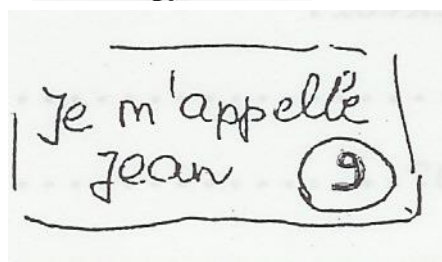 Je m'appellé
Jean 9